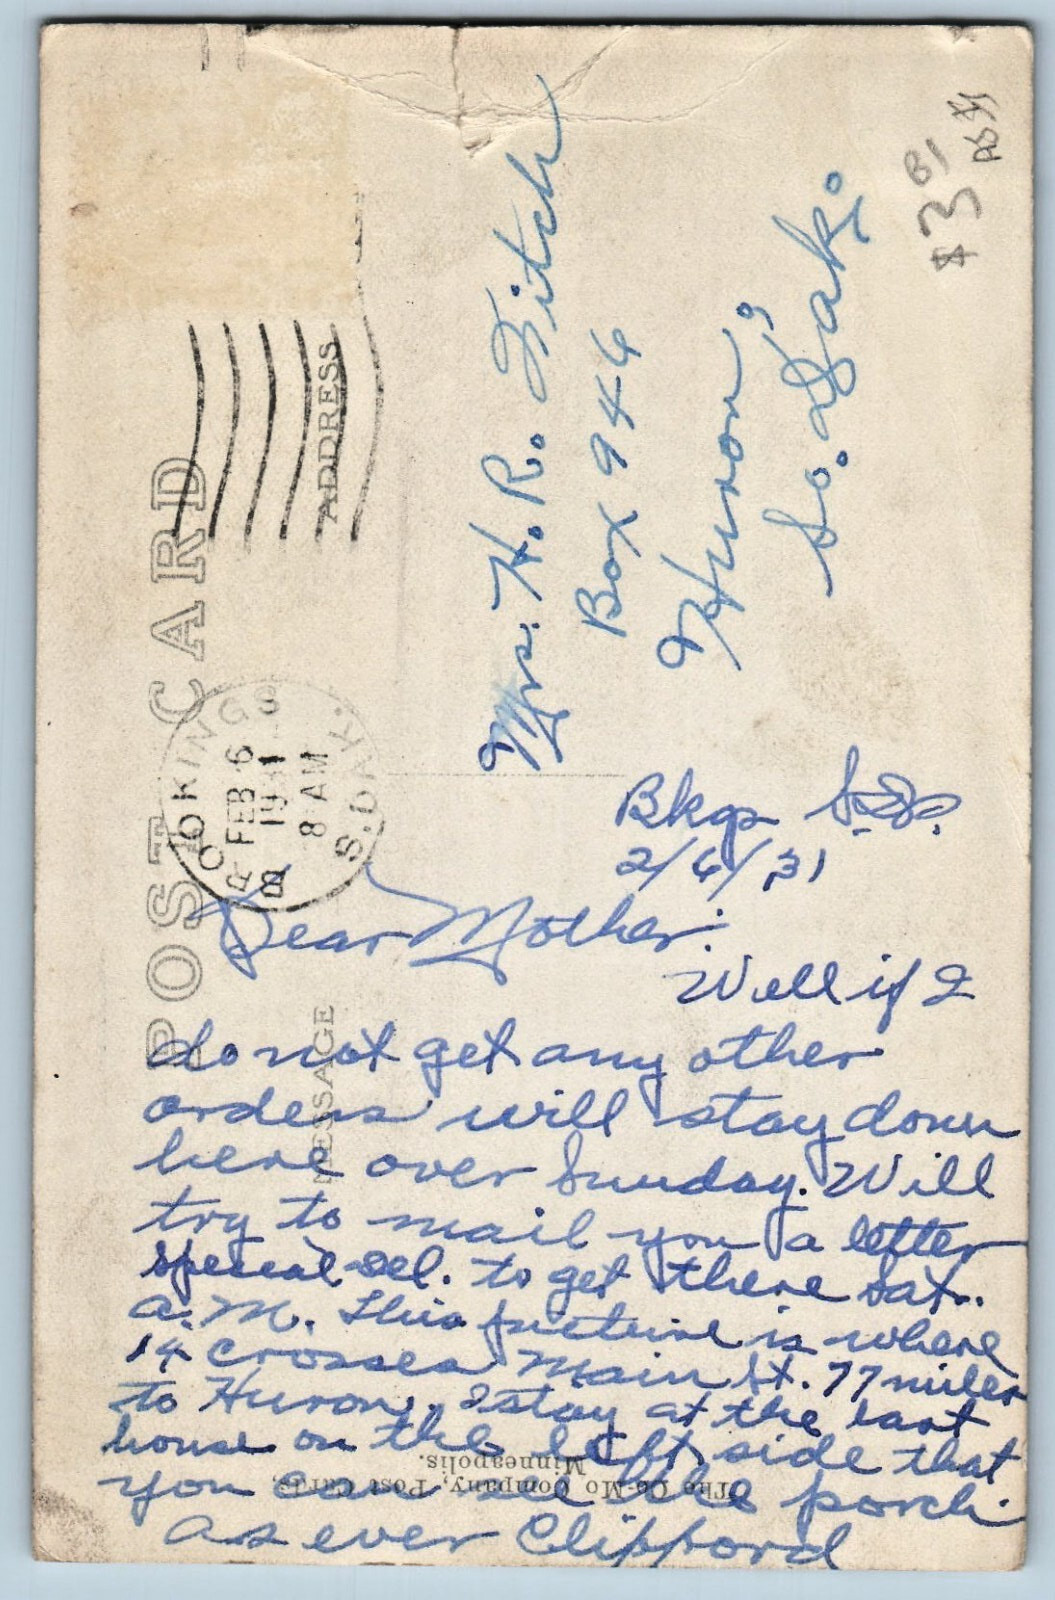 POST CARD
ADDRESS
MESSAGE
BROOKINGS
S.DAK.
FEB 6
8 AM
1931
$3
B1
Mrs. H. R. Fitch
Box 946
Huron,
So. Dak.
Bkgs S.D.
2/6/31
Dear Mother:
Well if I
do not get any other
orders will stay down
here over Sunday. Will
try to mail you a letter
special Del. to get there Sat.
A.M. This picture is where
14 crosses Main St. 77 miles
to Huron. I stay at the last
house on the left side that
you can see the porch.
As ever Clippord
The Co-Mo Company, Post Cards,
Minneapolis.